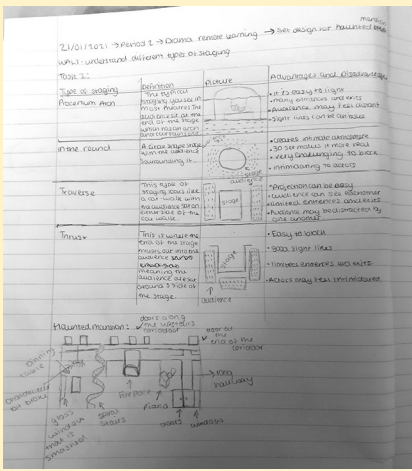 mansion
21/01/2021 → Period 2 → Drama remote learning → Set design for haunted
WALT: understand different types of staging
Task 1:
Type of staging
Definition
Picture
Advantages and Disadvantages
Proscenium Arch
The typical
staging you see in
most theatres. The
audience sit at the
end of the stage
which has an arch
and curtains
• it is easy to light
• many entrances and exits
• Audience may feel distant
• Sight lines can be an issue
in the round
A circle shape stage
with the audience
surrounding it.
stage
audience
• creates intimate atmosphere
• 3D set makes it more real
• very challenging to block
• intimidating to actors
Traverse
This type of
staging looks like
a cat-walk with
the audience sat on
either side of the
cat walk.
stage
• Projection can be easy
• audience can see each other
• limited entrances and exits
• Audience may be distracted by
one another
Thrust
This is where the
end of the stage
thrusts out into the
audience
meaning the
audience are sat
around 3 sides of
the stage.
stage
audience
• Easy to block
• Good sight lines
• limited entrances and exits
• Actors may feel intimidated
Haunted mansion:
doors along
the upstairs
corridor
door at
the end of the
corridor
Dining
table
long
hallway
glass
window
that is
smashed
spiral
stairs
Fireplace
Piano
doors
windows